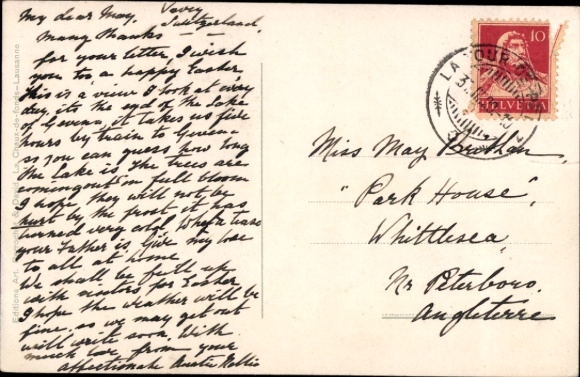 Vevey
My dear May, Switzerland,
Many thanks
for your letter, I wish
you too a happy Easter,
this is a view I look at every
day, its the end of the Lake
of Geneva, it takes us five
hours by train to Geneva
so you can guess how long
the Lake is, The trees are
coming out in full bloom
I hope they will not be
hurt by the frost it has
turned very cold, What a tease
your Father is, Give my love
to all at home
We shall be full up
with visitors for Easter
I hope the weather will be
fine, so we may get out
will write soon. With
much love from your
affectionate Auntie Nellie
Miss May
"Park House",
Whittlesea,
Nr Peterboro,
Angleterre
10
HELVETIA
LA TOUR-DE
Edition Art. La Chaux-de-fonds-Lausanne